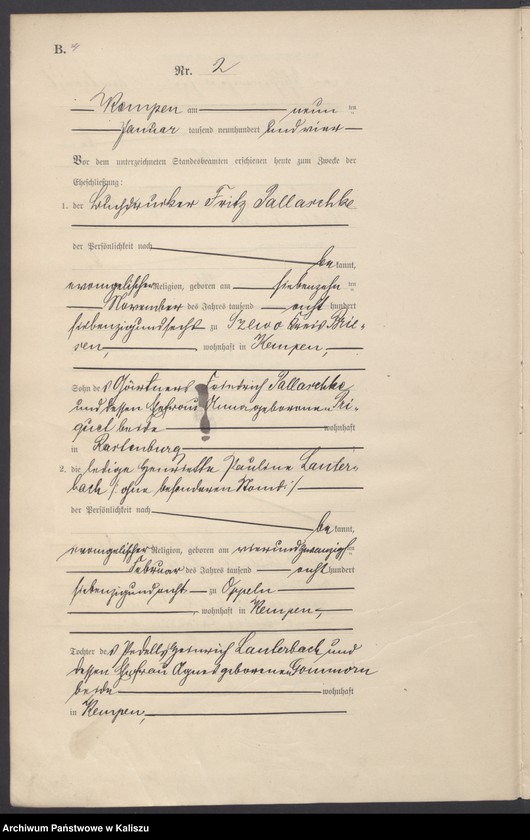 B.
Nr. 2
Kempen am neun ten
Januar tausend neunhundert und vier
Vor dem unterzeichneten Standesbeamten erschienen heute zum Zwecke der
Eheschließung:
1. der Buchdrucker Fritz Pallaschke
der Persönlichkeit nach
be kannt,
evangelischer Religion, geboren am siebenzehn ten
November des Jahres tausend acht hundert
siebenzigundsechs zu Kreis
, wohnhaft in Kempen,
Sohn des Gärtners Friedrich Pallaschke
und dessen Ehefrau Anna geborenen
beide wohnhaft
in Rastenburg
2. die ledige Henriette Pauline Lauter-
bach /: ohne besonderen Stand :/
der Persönlichkeit nach
be kannt,
evangelischer Religion, geboren am vierundzwanzigsten
Februar des Jahres tausend acht hundert
siebenzigundacht zu Oppeln
, wohnhaft in Kempen,
Tochter des Pedells Heinrich Lauterbach und
dessen Ehefrau Agnes geborenen Gommorn
beide wohnhaft
in Kempen,
Archiwum Państwowe w Kaliszu